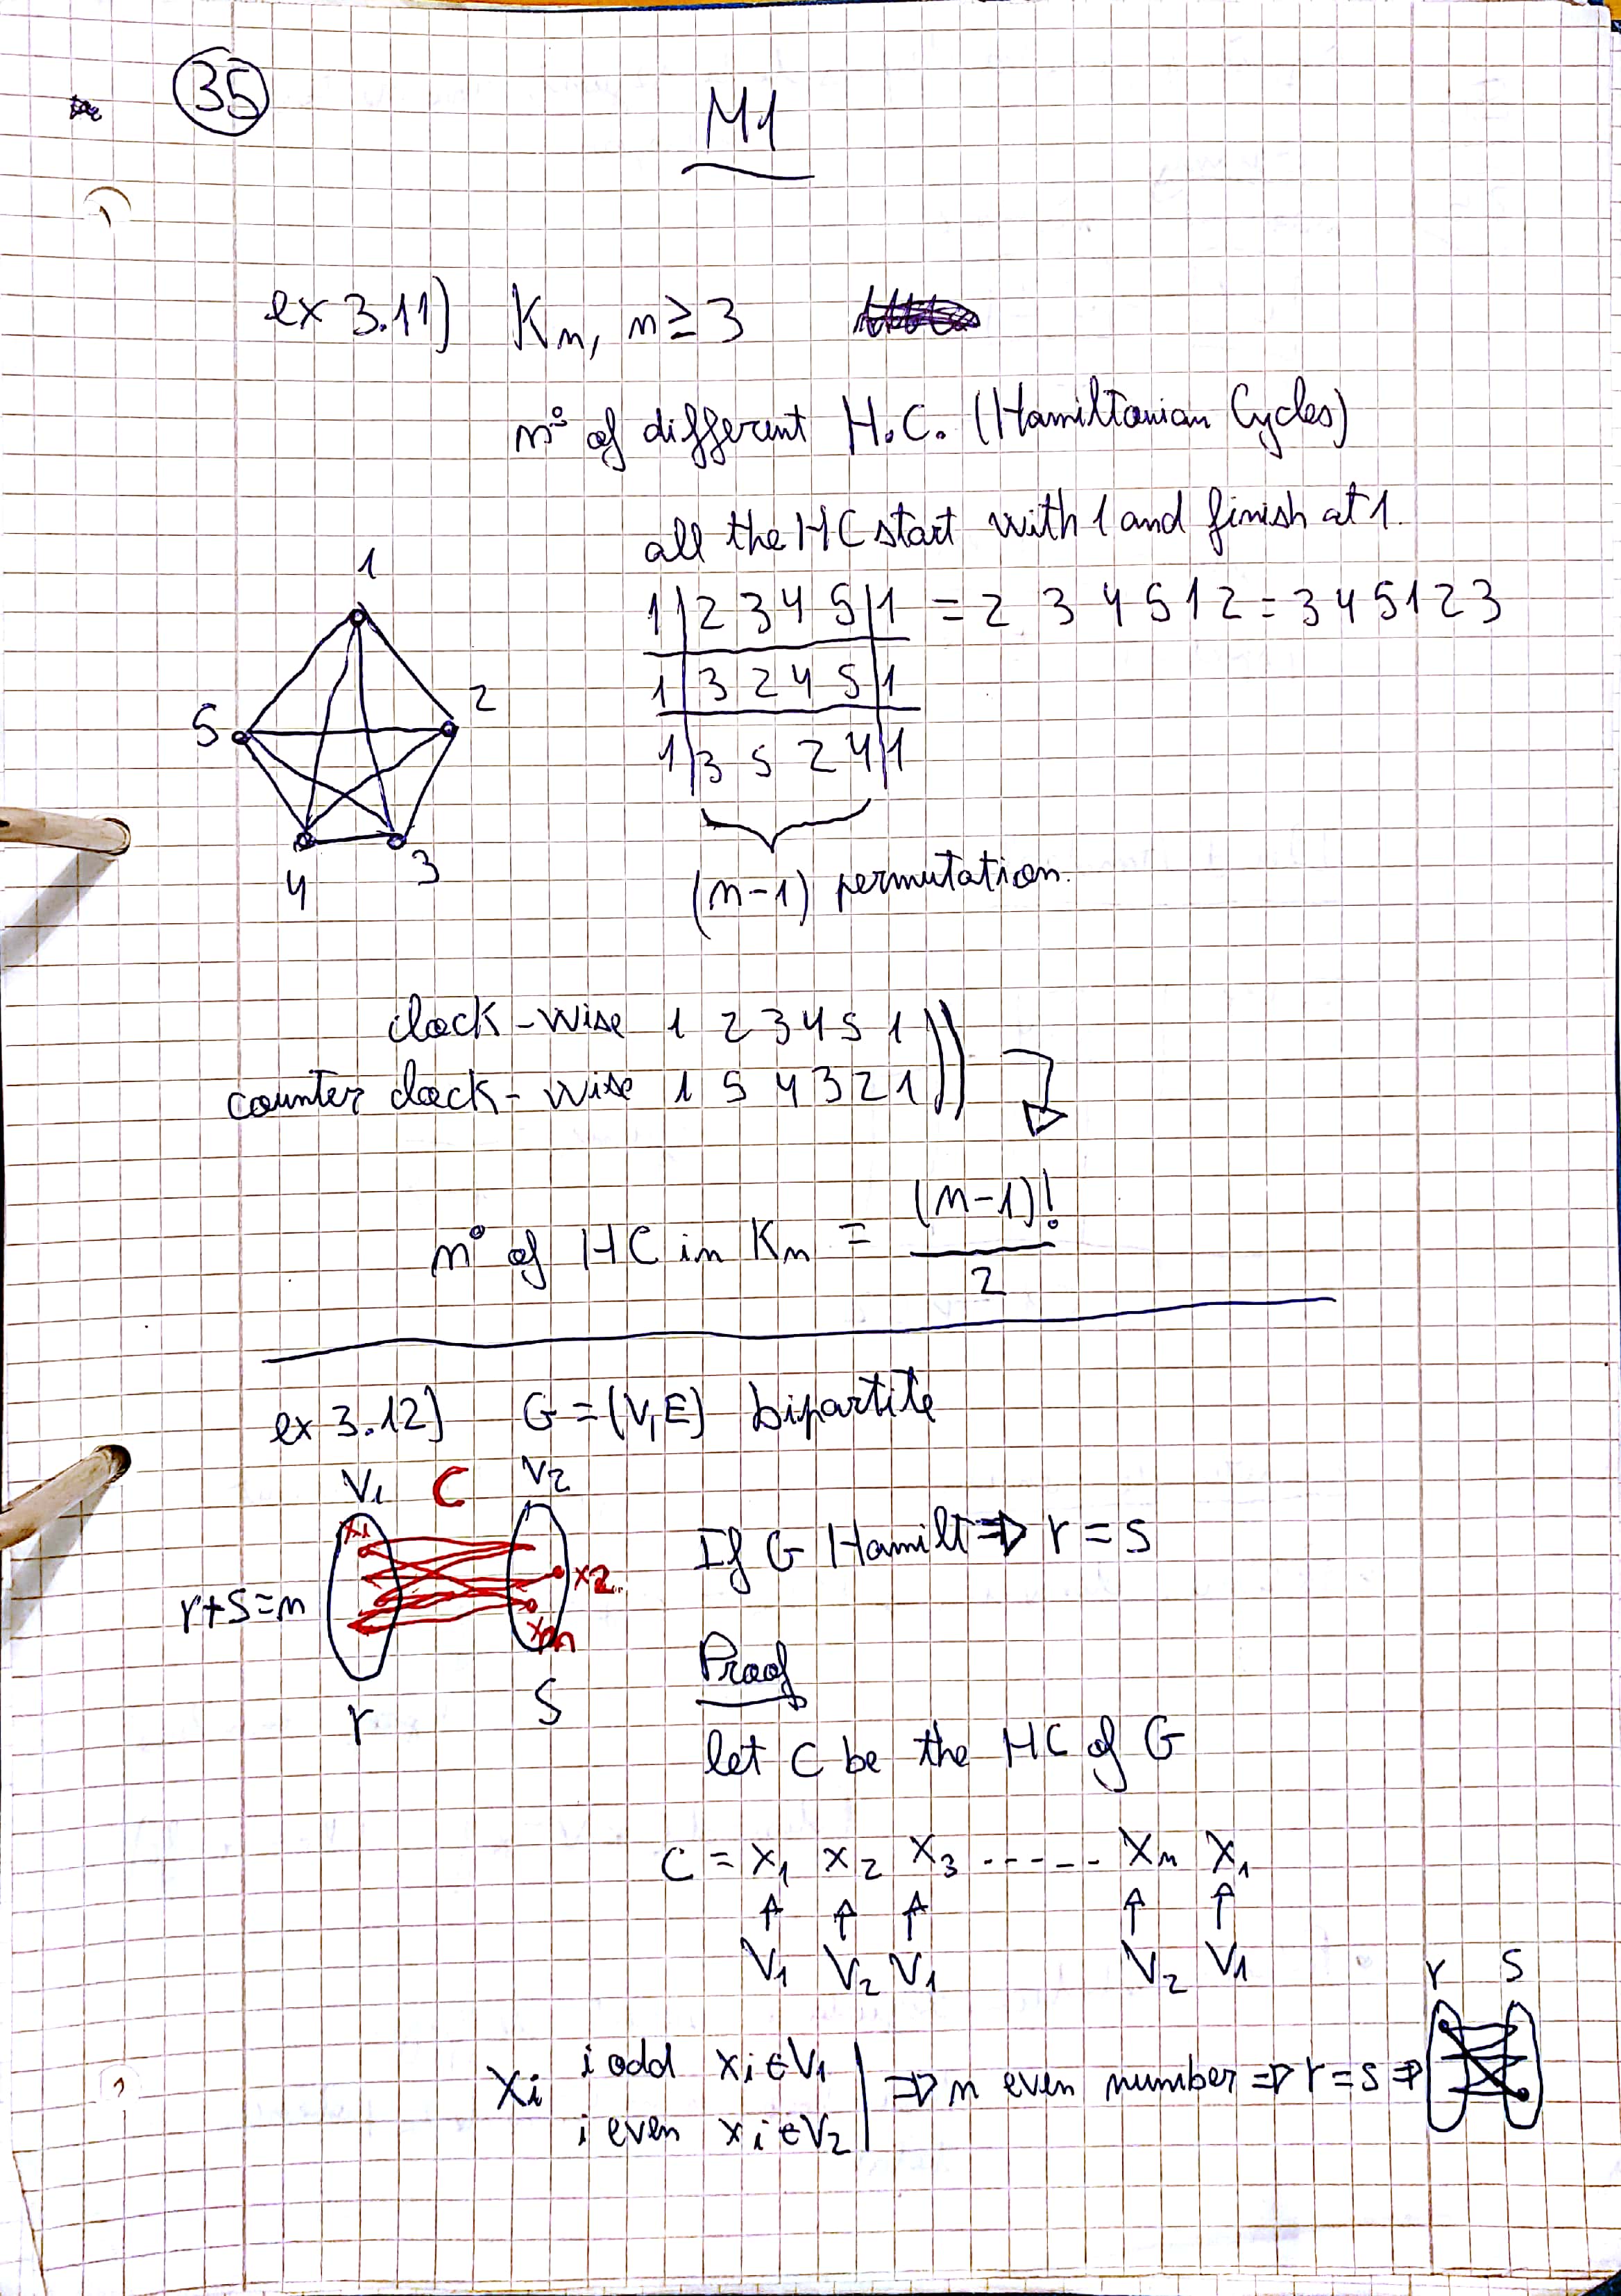 35
M1
ex 3.11) Kn, n ≥ 3
n° of different H.C. (Hamiltonian Cycles)
all the HC start with 1 and finish at 1.
1 | 2 3 4 5 | 1 = 2 3 4 5 1 2 = 3 4 5 1 2 3
1 | 3 2 4 5 | 1
1 | 3 5 2 4 | 1
1
2
5
4
3
(n-1) permutation.
clock-wise 1 2 3 4 5 1
counter clock-wise 1 5 4 3 2 1
n° of HC in Kn = (n-1)! / 2
ex 3.12) G = (V, E) bipartite
V1 C V2
x1
x2
xn
r+s=n
r
s
If G Hamilt ⇒ r = s
Proof
let C be the HC of G
C = x1 x2 x3 ------ xn x1
↑ ↑ ↑ ↑ ↑
V1 V2 V1 V2 V1
r s
xi i odd xi ∈ V1
i even xi ∈ V2
⇒ n even number ⇒ r = s ⇒